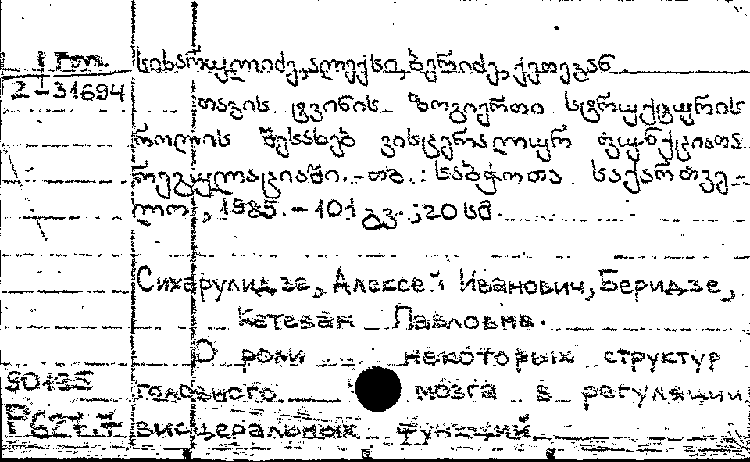 სიხარულიძე, ალექსი, ბერიძე, ქეთევან.
2-31694
თავის ტვინის ზოგიერთი სტრუქტურის
როლის შესახებ ვისცერალურ ფუნქციათა
რეგულაციაში.-თბ.: საბჭოთა საქართვე-
ლო, 1985.-101 გვ.; 20 სმ.
Сихарулидзе, Алексей Иванович, Беридзе,
Кетеван Павловна.
О роли некоторых структур
головного мозга в регуляции
висцеральных функций